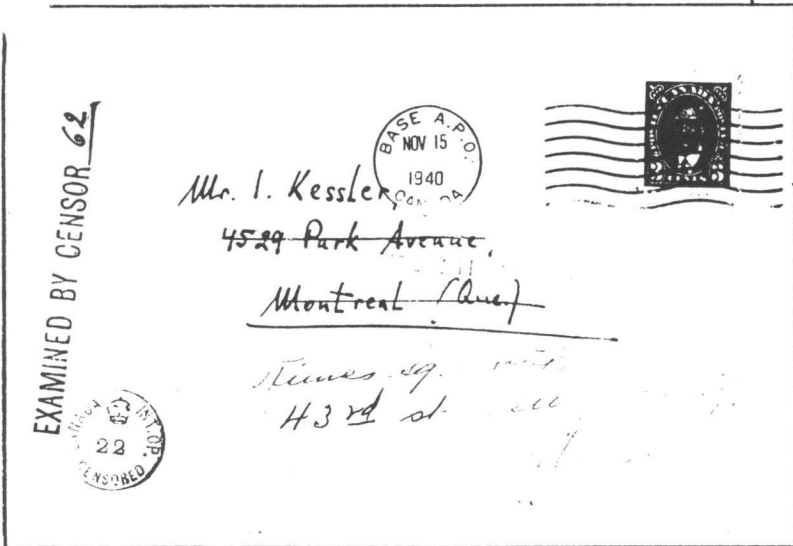 EXAMINED BY CENSOR 62
BASE A.P.O.
NOV 15
1940
CANADA
CANADA
2 CENTS 2
Mr. I. Kessler,
4529 Park Avenue,
Montreal (Que.)
Times sq.
43rd st.
CANADA INT. OP.
22
CENSORED